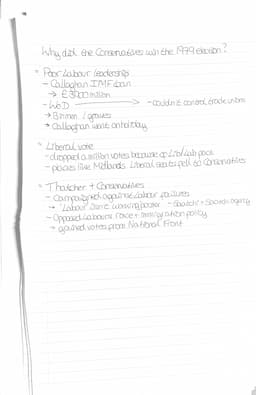 Why did the Conservatives win the 1979 election?
• Poor Labour leadership
- Callaghan IMF loan
→ £3900 million
- WoD → - couldn't control trade unions
→ Binmen / graves
→ Callaghan went on holiday
• Liberal vote
- dropped a million votes because of Lib/Lab pact
- places like Midlands Liberal seats fell to Conservatives
• Thatcher + Conservatives
- campaigned against Labour failures
→ 'Labour isn't working' poster - Saatchi + Saatchi agency
- Opposed Labour's race + immigration policy
→ gained votes from National Front